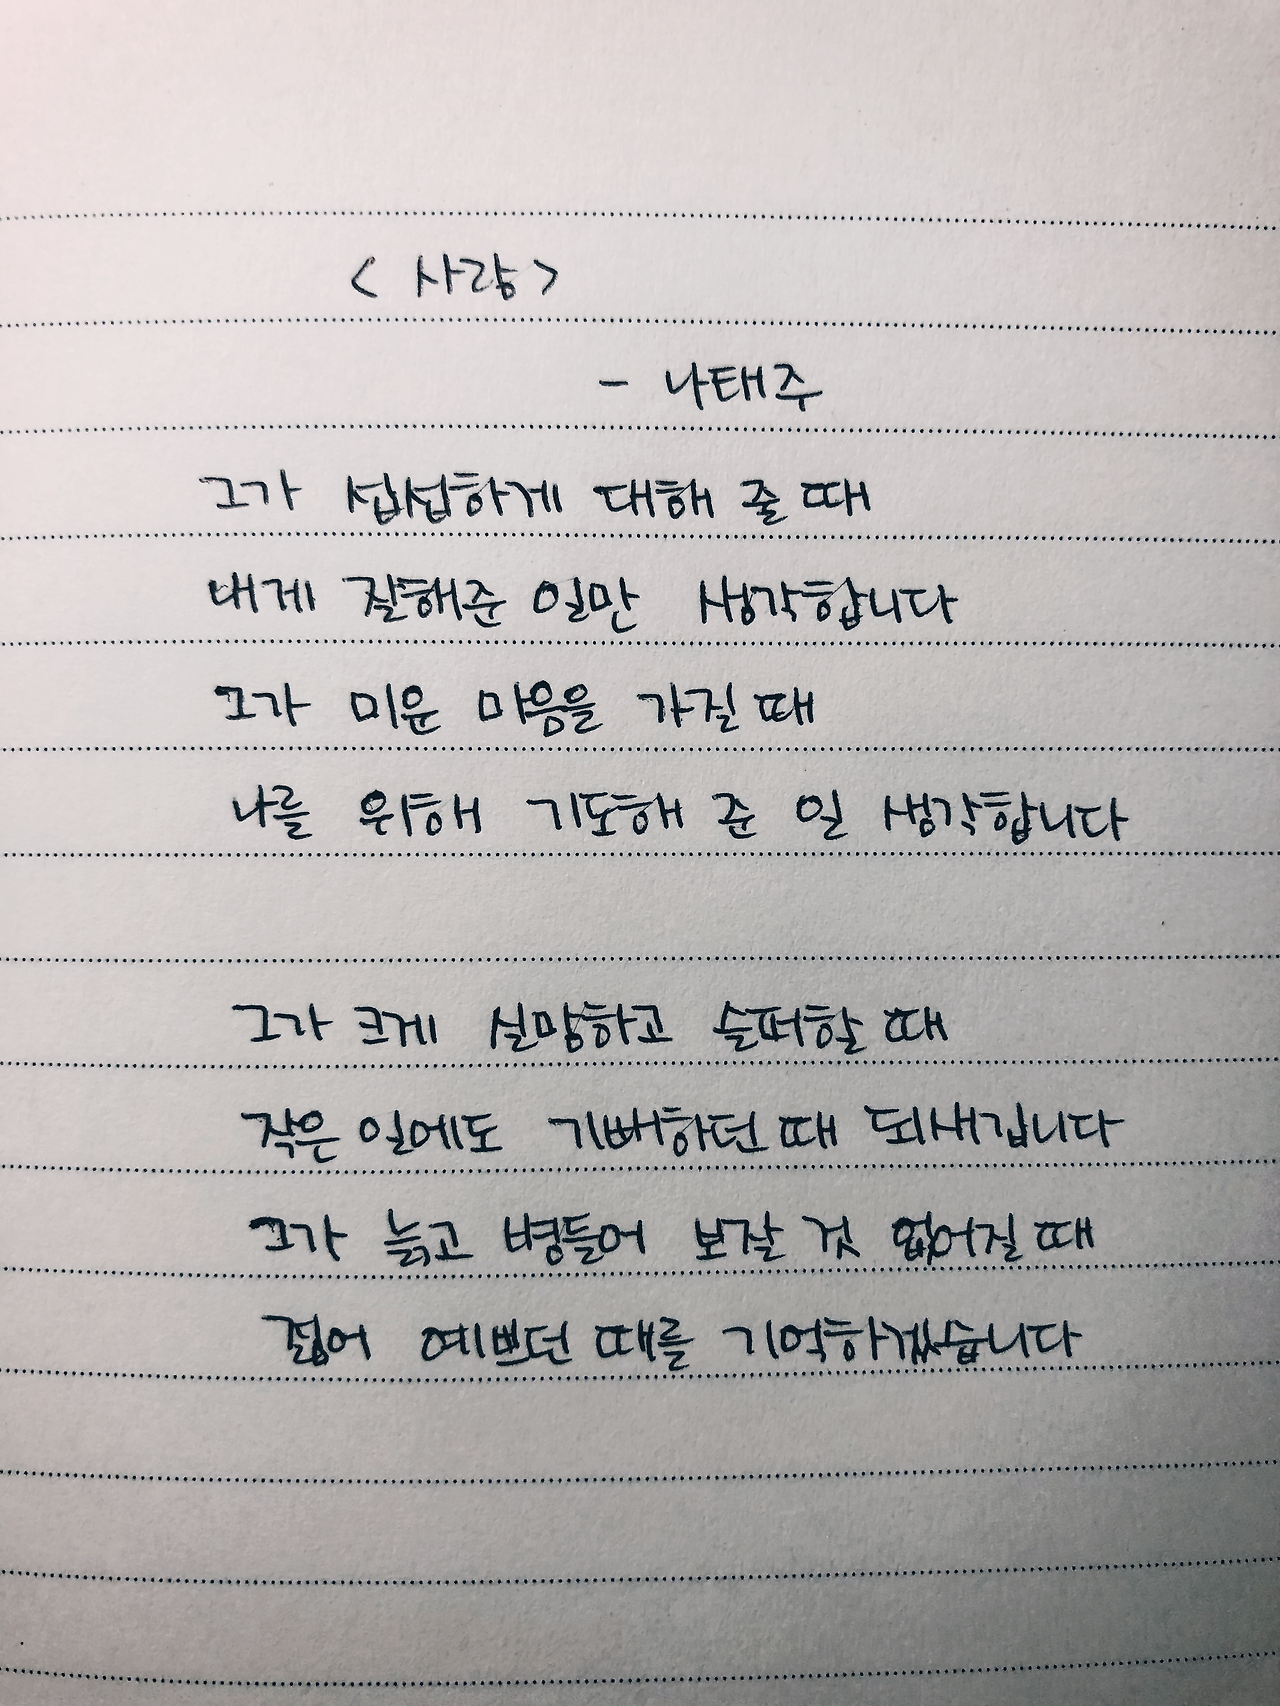 < 사랑 >
- 나태주
그가 섭섭하게 대해 줄 때
내게 잘해준 일만 생각합니다
그가 미운 마음을 가질 때
나를 위해 기도해 준 일 생각합니다
그가 크게 실망하고 슬퍼할 때
작은 일에도 기뻐하던 때 되새깁니다
그가 늙고 병들어 보잘 것 없어질 때
젊어 예쁘던 때를 기억하겠습니다